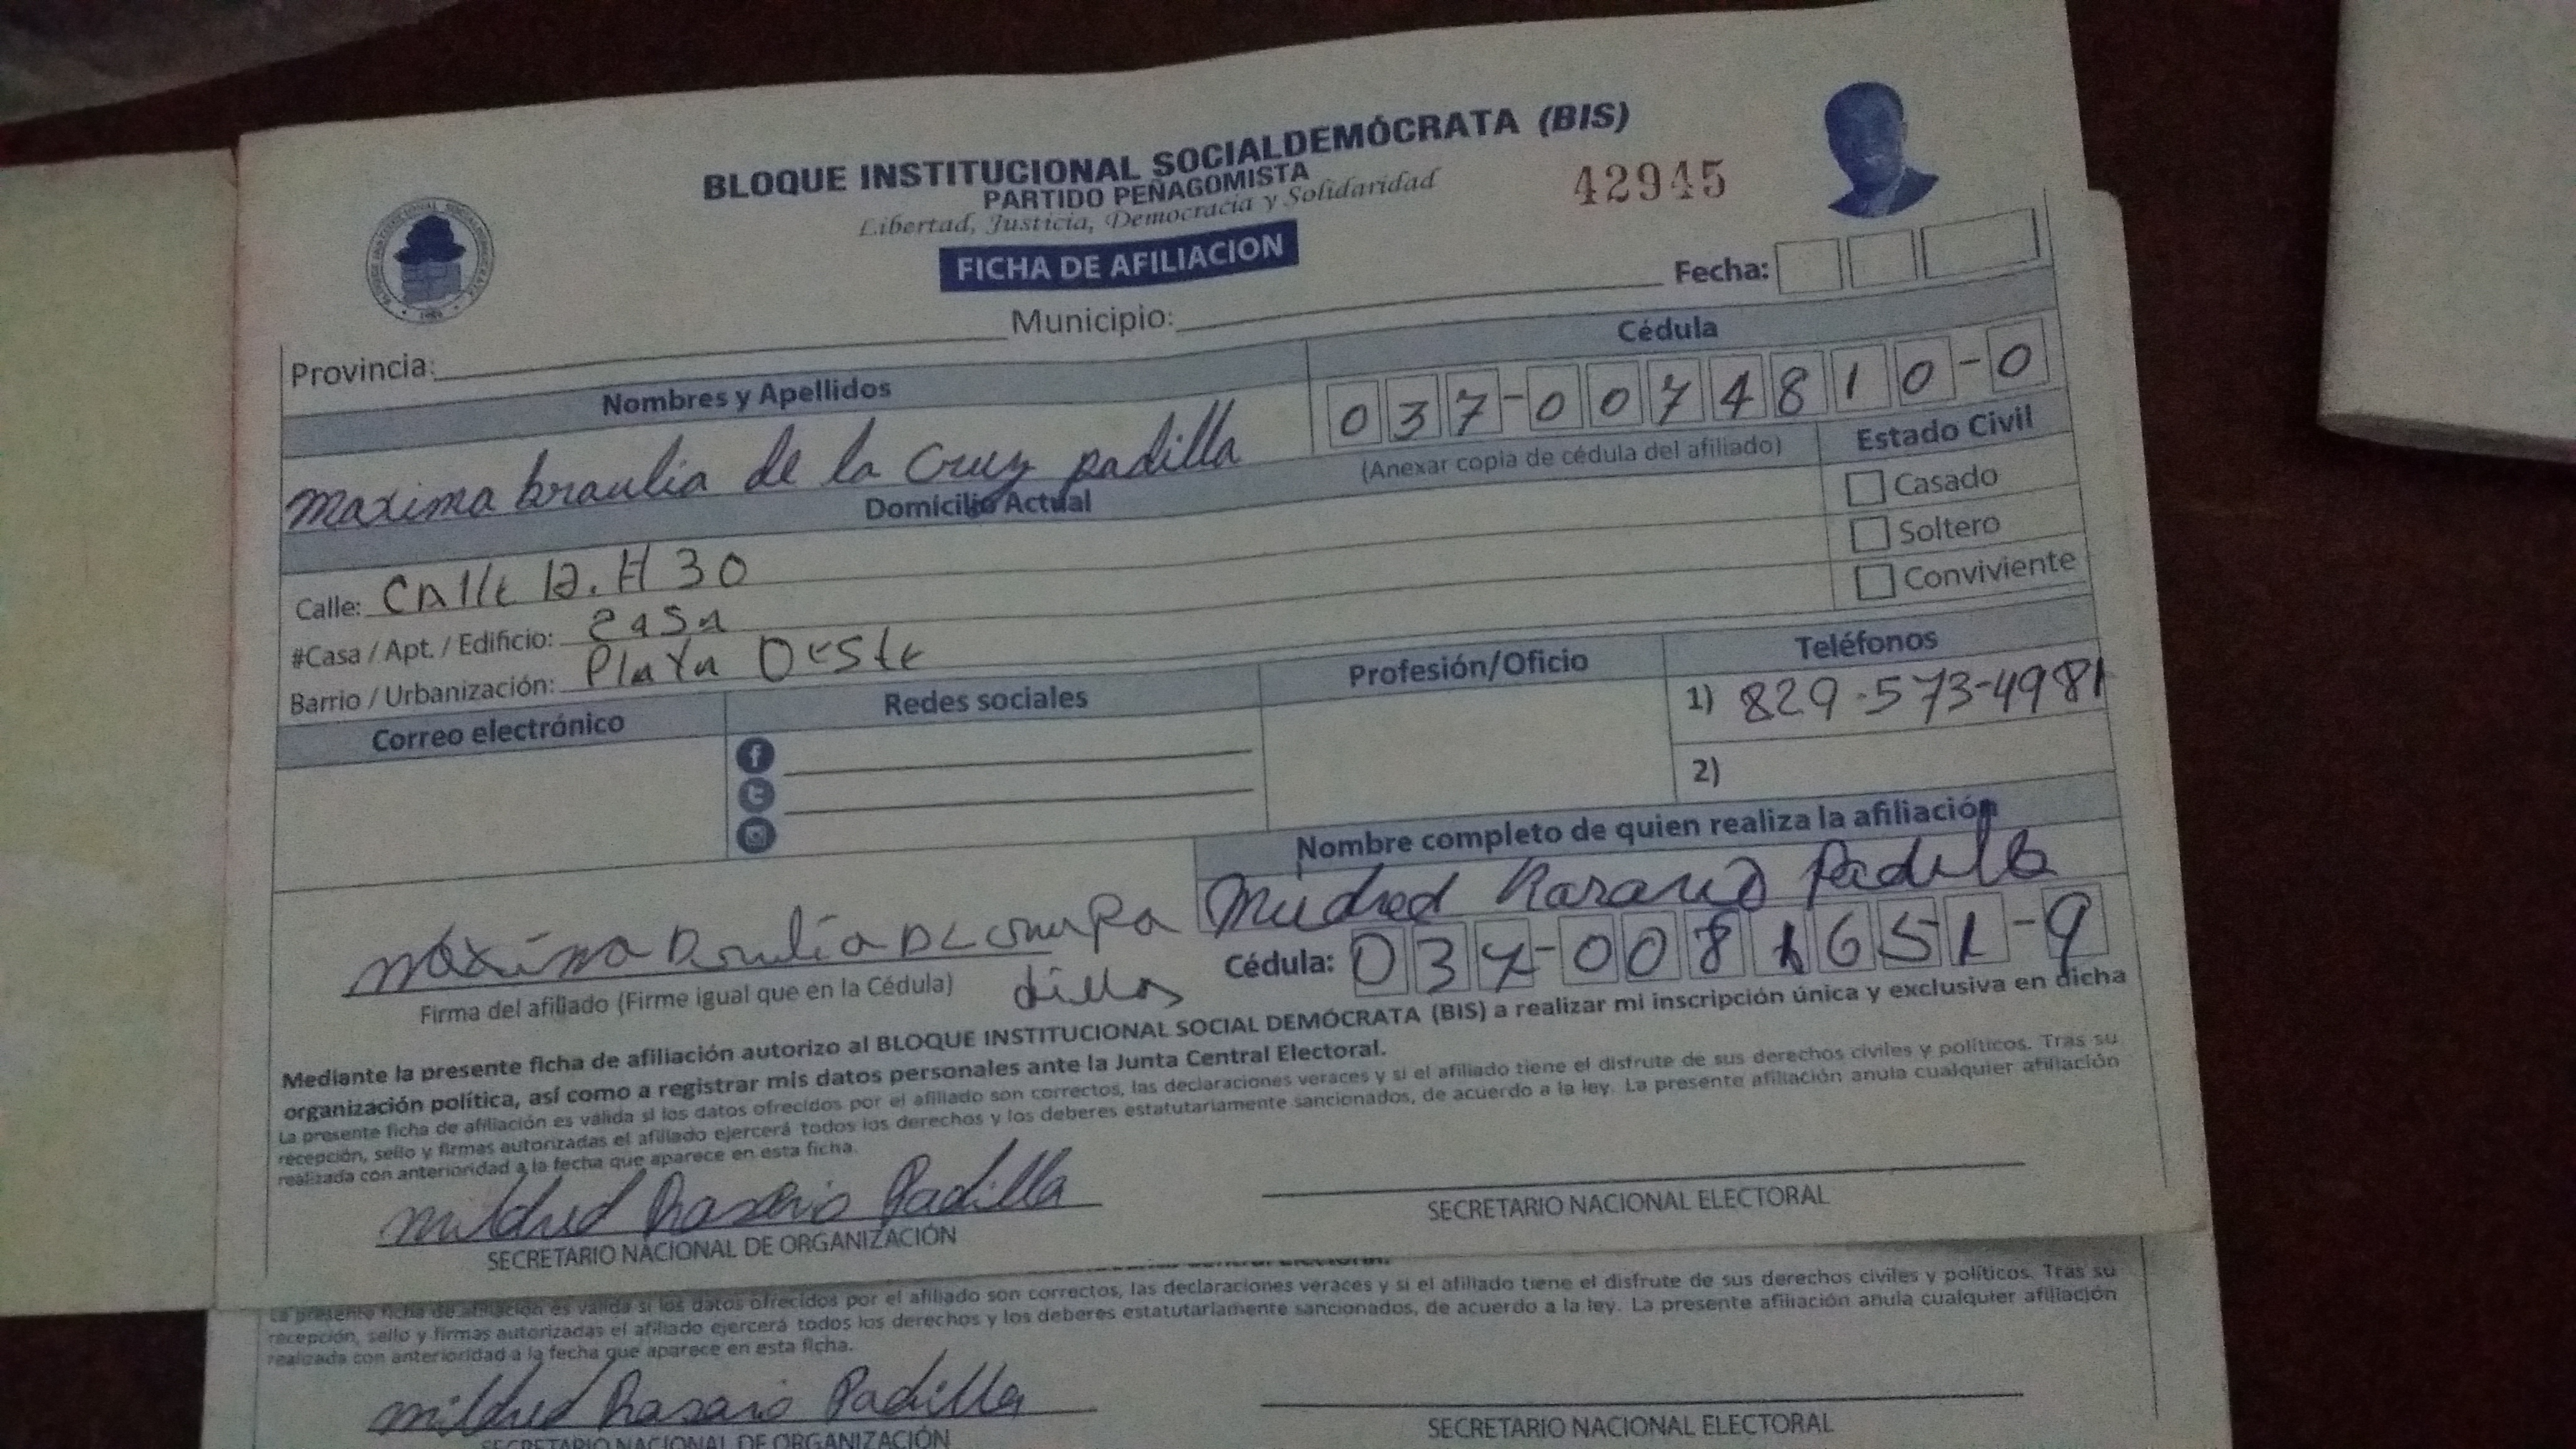 BLOQUE INSTITUCIONAL SOCIALDEMÓCRATA (BIS)
PARTIDO PEÑAGOMISTA
Libertad, Justicia, Democracia y Solidaridad
42945
FICHA DE AFILIACION
Fecha:
Provincia: Municipio:
Nombres y Apellidos
Cédula
maxima braulia de la Cruz padilla
037-0074810-0
(Anexar copia de cédula del afiliado)
Estado Civil
Domicilio Actual
Casado
Soltero
Conviviente
Calle: Calle 12. # 30
#Casa / Apt. / Edificio: casa
Barrio / Urbanización: Playa Oeste
Correo electrónico
Redes sociales
Profesión/Oficio
Teléfonos
1) 829-573-4981
2)
Nombre completo de quien realiza la afiliación
Mildred Rosario Padilla
Cédula: 037-0081651-9
maxima
dilla
Firma del afiliado (Firme igual que en la Cédula)
Mediante la presente ficha de afiliación autorizo al BLOQUE INSTITUCIONAL SOCIAL DEMÓCRATA (BIS) a realizar mi inscripción única y exclusiva en dicha
organización política, así como a registrar mis datos personales ante la Junta Central Electoral.
La presente ficha de afiliación es válida si los datos ofrecidos por el afiliado son correctos, las declaraciones veraces y si el afiliado tiene el disfrute de sus derechos civiles y políticos. Tras su
recepción, sello y firmas autorizadas el afiliado ejercerá todos los derechos y los deberes estatutariamente sancionados, de acuerdo a la ley. La presente afiliación anula cualquier afiliación
realizada con anterioridad a la fecha que aparece en esta ficha.
mildred Rosario Padilla
SECRETARIO NACIONAL DE ORGANIZACIÓN
SECRETARIO NACIONAL ELECTORAL
La presente ficha de afiliación es válida si los datos ofrecidos por el afiliado son correctos, las declaraciones veraces y si el afiliado tiene el disfrute de sus derechos civiles y políticos. Tras su
recepción, sello y firmas autorizadas el afiliado ejercerá todos los derechos y los deberes estatutariamente sancionados, de acuerdo a la ley. La presente afiliación anula cualquier afiliación
realizada con anterioridad a la fecha que aparece en esta ficha.
mildred Rosario Padilla
SECRETARIO NACIONAL DE ORGANIZACIÓN
SECRETARIO NACIONAL ELECTORAL